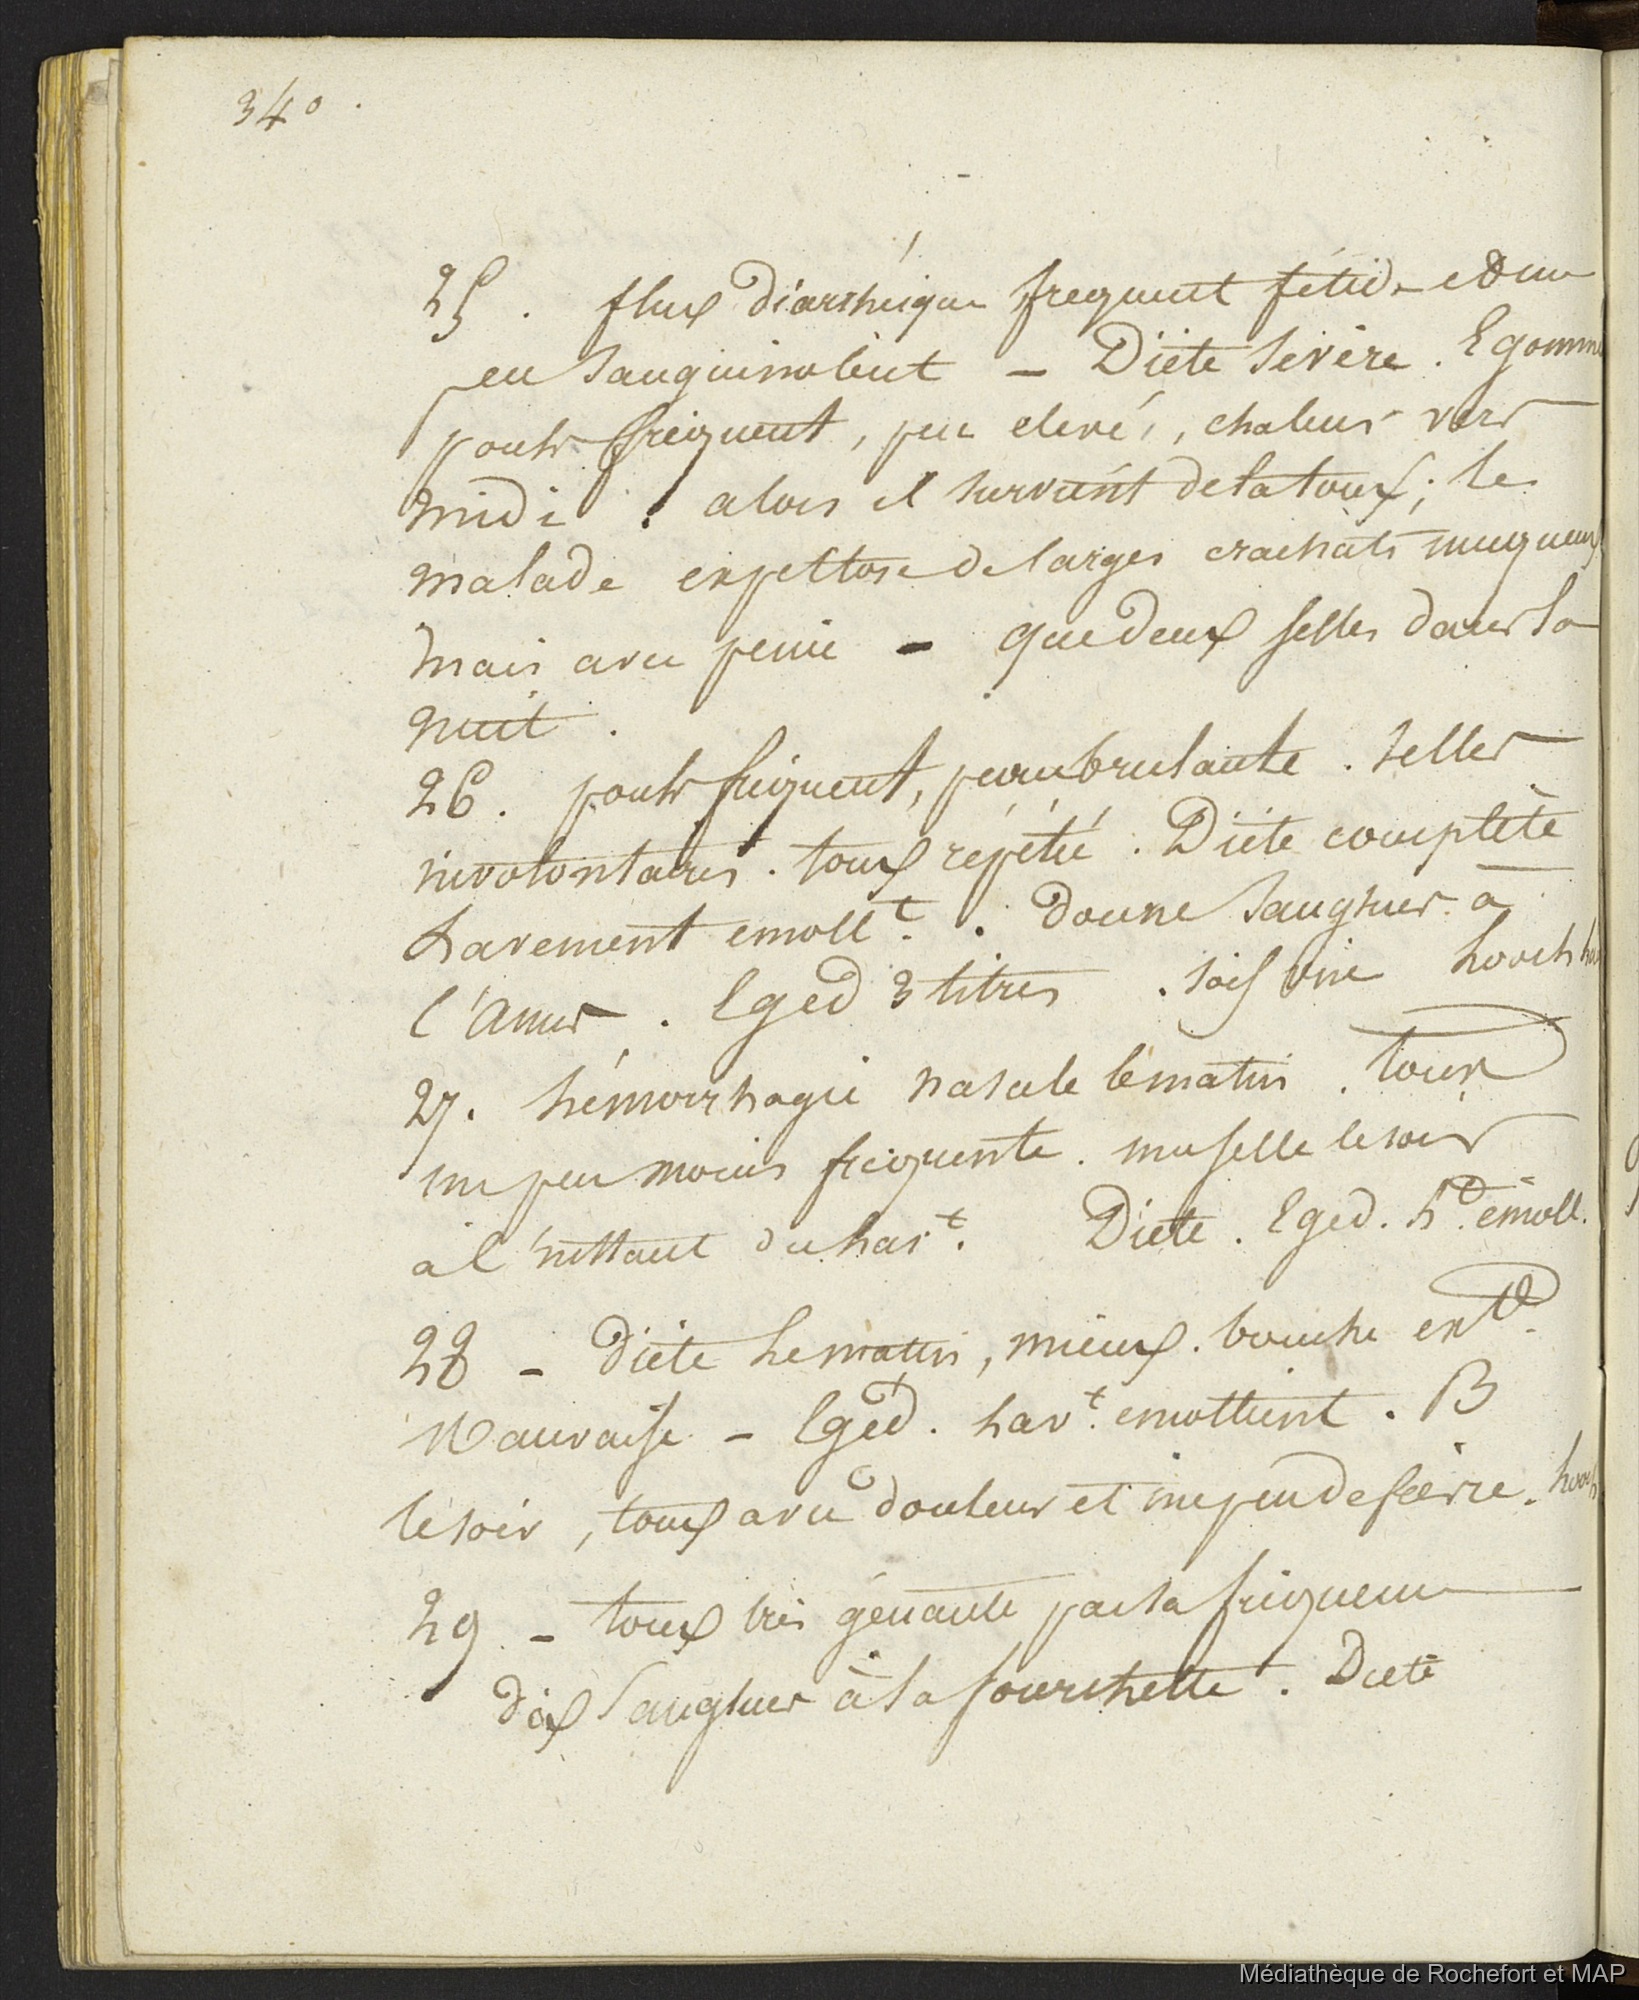 340.
25. flux diarrhéique frequent fétide et un
peu sanguinolent — Diète sévère. Egomme
pouls frequent, peu elevé, chaleur vers
midi. alors il survient de la toux; le
malade expectore de larges crachats muqueux
mais avec peine — que deux selles dans la
nuit.
26. pouls frequent, peau brulante. selles
involontaires. toux répétée. Diète complète
Lavement emoll.t. Douze sangsues à
l'anus. Eged 3 litres. soif vive looch
27. hémorrhagie nasale le matin. toux
un peu moins frequente. une selle le soir
à l'instant du lav.t. Diete. Eged. emoll.
28 — Diète le matin, mieux. bouche
mauvaise — Eged. lav.t emollient. B
le soir, toux avec douleur et un peu de fièvre. looch
29 — toux très gênante par sa frequence
dix sangsues à la fourchette. Diete
Médiathèque de Rochefort et MAP